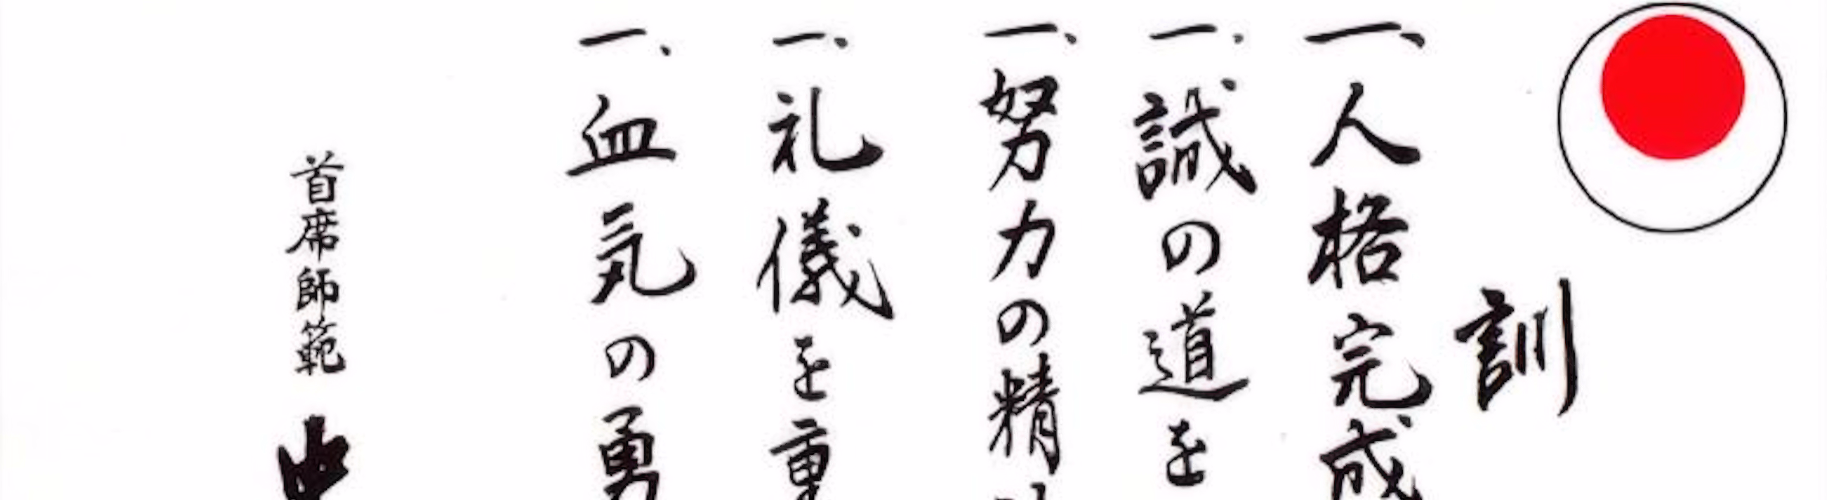 訓
一、人格完成
一、誠の道を
一、努力の精
一、礼儀を重
一、血気の勇
首席師範